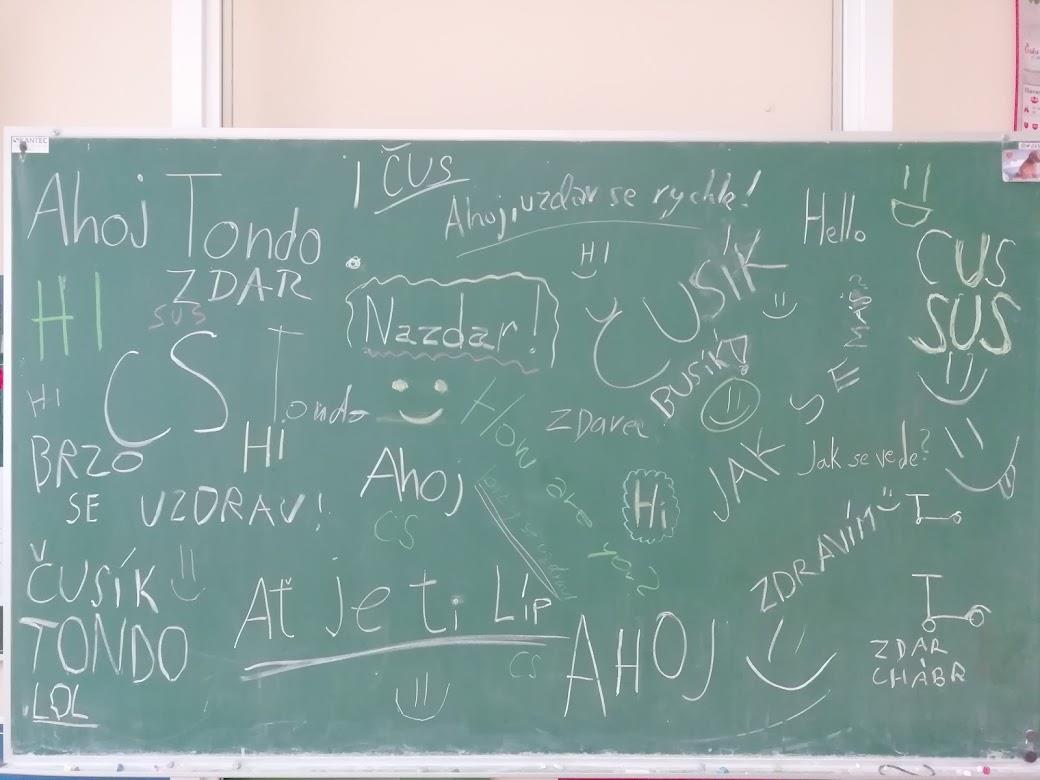 KANTEC
Ahoj Tondo
ČUS
Ahoj, uzdrav se rychle!
Hello
HI
ZDAR
SUS
HI
Nazdar!
ČUSÍK
CUS
SUS
CS Tondo
HI
BUSÍK!
JAK SE MÁŠ?
Hi
How are you?
ZDAREC
BRZO
SE UZDRAV!
Ahoj
CS
Hi
Jak se vede?
ZDRAVÍM
ČUSÍK
TONDO
LOL
Ať je ti Líp
CS
AHOJ
ZDAR
CHÁBR